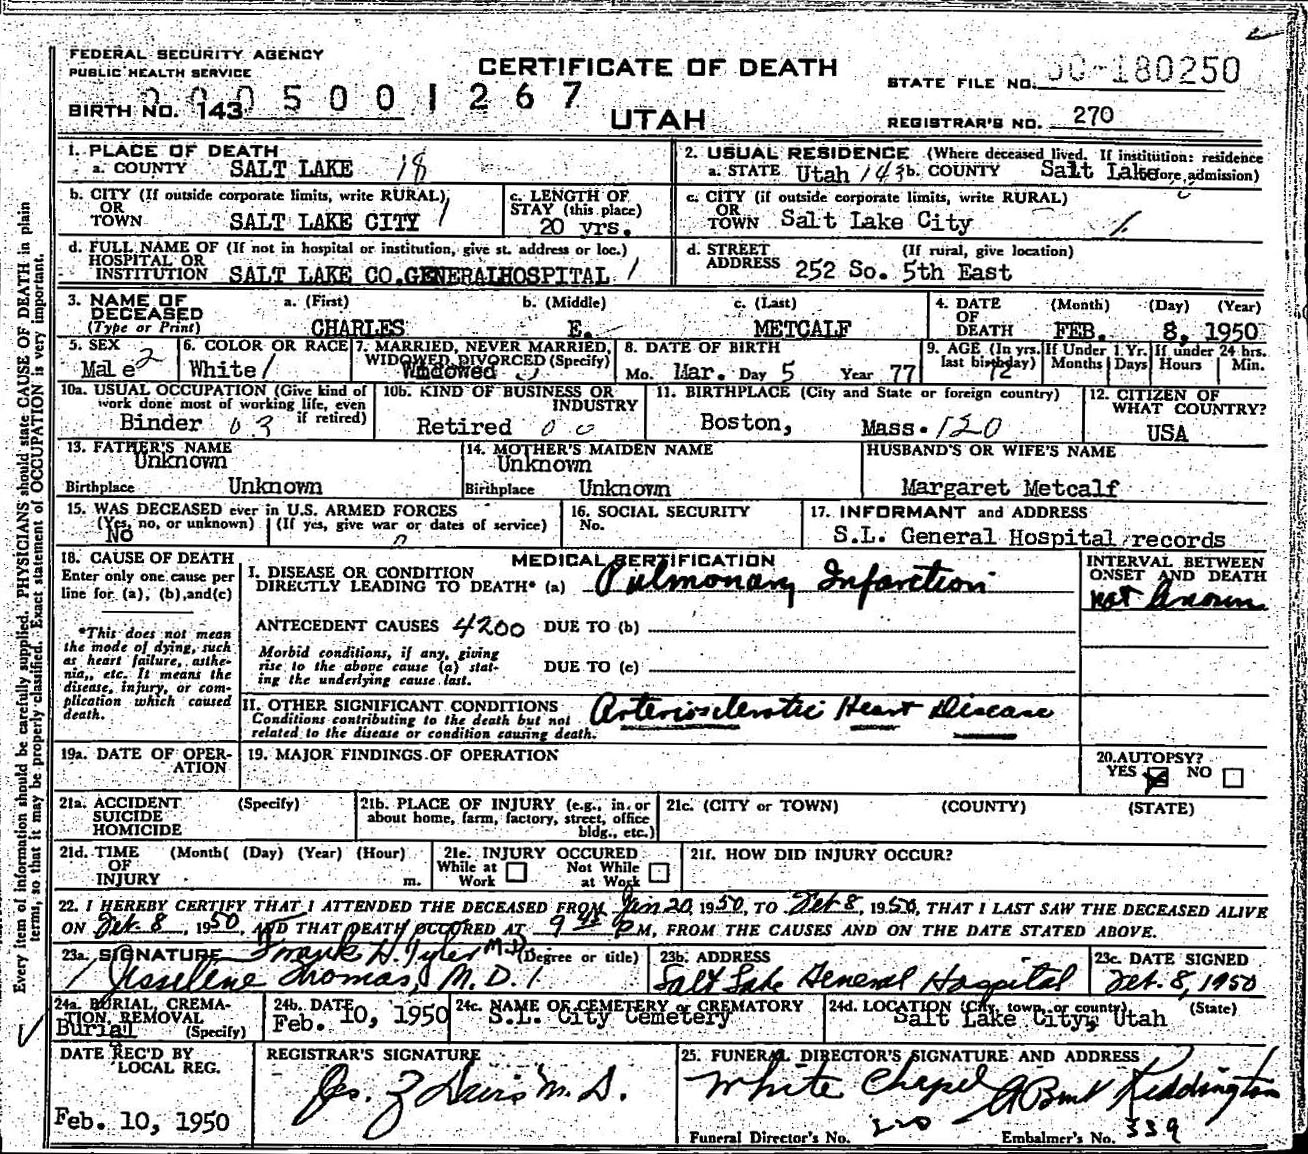 FEDERAL SECURITY AGENCY
PUBLIC HEALTH SERVICE
CERTIFICATE OF DEATH
STATE FILE NO. 50-180250
BIRTH NO. 143
5001267
UTAH
REGISTRAR'S NO. 270
1. PLACE OF DEATH
a. COUNTY SALT LAKE 18
2. USUAL RESIDENCE (Where deceased lived. If institution: residence before admission)
a. STATE Utah 143 b. COUNTY Salt Lake
b. CITY (If outside corporate limits, write RURAL)
OR
TOWN SALT LAKE CITY 1
c. LENGTH OF
STAY (this place)
20 yrs.
c. CITY (if outside corporate limits, write RURAL)
OR
TOWN Salt Lake City 1.
d. FULL NAME OF (If not in hospital or institution, give st. address or loc.)
HOSPITAL OR
INSTITUTION SALT LAKE CO.GENERALHOSPITAL 1
d. STREET (If rural, give location)
ADDRESS 252 So. 5th East
3. NAME OF DECEASED (Type or Print)
a. (First) b. (Middle) c. (Last)
CHARLES E. METCALF
4. DATE OF DEATH (Month) (Day) (Year)
FEB. 8, 1950
5. SEX
Male 2
6. COLOR OR RACE
White 1
7. MARRIED, NEVER MARRIED,
WIDOWED, DIVORCED (Specify)
Widowed
8. DATE OF BIRTH
Mo. Mar. Day 5 Year 77
9. AGE (In yrs. last birthday)
72
If Under 1 Yr. Months Days
If under 24 hrs. Hours Min.
10a. USUAL OCCUPATION (Give kind of
work done most of working life, even
if retired)
Binder 03
10b. KIND OF BUSINESS OR
INDUSTRY
Retired 00
11. BIRTHPLACE (City and State or foreign country)
Boston, Mass. 120
12. CITIZEN OF
WHAT COUNTRY?
USA
13. FATHER'S NAME
Unknown
Birthplace Unknown
14. MOTHER'S MAIDEN NAME
Unknown
Birthplace Unknown
HUSBAND'S OR WIFE'S NAME
Margaret Metcalf
15. WAS DECEASED ever in U.S. ARMED FORCES
(Yes, no, or unknown) (If yes, give war or dates of service)
No 0
16. SOCIAL SECURITY
No.
17. INFORMANT and ADDRESS
S.L. General Hospital records
18. CAUSE OF DEATH
Enter only one cause per
line for (a), (b),and(c)
*This does not mean
the mode of dying, such
as heart failure, asthe-
nia,, etc. It means the
disease, injury, or com-
plication which caused
death.
MEDICAL CERTIFICATION
I. DISEASE OR CONDITION
DIRECTLY LEADING TO DEATH* (a) Pulmonary Infarction
INTERVAL BETWEEN
ONSET AND DEATH
not known
ANTECEDENT CAUSES 4200 DUE TO (b)
Morbid conditions, if any, giving
rise to the above cause (a) stat-
ing the underlying cause last.
DUE TO (c)
II. OTHER SIGNIFICANT CONDITIONS
Conditions contributing to the death but not
related to the disease or condition causing death.
Arteriosclerotic Heart Disease
19a. DATE OF OPER-
ATION
19. MAJOR FINDINGS OF OPERATION
20.AUTOPSY?
YES NO
21a. ACCIDENT (Specify)
SUICIDE
HOMICIDE
21b. PLACE OF INJURY (e.g., in or
about home, farm, factory, street, office
bldg., etc.)
21c. (CITY or TOWN) (COUNTY) (STATE)
21d. TIME (Month( (Day) (Year) (Hour)
OF
INJURY m.
21e. INJURY OCCURED
While at Work Not While at Work
21f. HOW DID INJURY OCCUR?
22. I HEREBY CERTIFY THAT I ATTENDED THE DECEASED FROM Jan 20, 1950, TO Feb 8, 1950, THAT I LAST SAW THE DECEASED ALIVE
ON Feb. 8, 1950, AND THAT DEATH OCCURED AT 9 45 PM, FROM THE CAUSES AND ON THE DATE STATED ABOVE.
23a. SIGNATURE (Degree or title)
Frank H. Tyler M.D.
Jesselene Thomas, M.D. 1
23b. ADDRESS
Salt Lake General Hospital
23c. DATE SIGNED
Feb. 8, 1950
24a. BURIAL, CREMA-
TION, REMOVAL
(Specify)
Burial
24b. DATE
Feb. 10, 1950
24c. NAME OF CEMETERY or CREMATORY
S.L. City Cemetery
24d. LOCATION (City, town, or county) (State)
Salt Lake City, Utah
DATE REC'D BY
LOCAL REG.
Feb. 10, 1950
REGISTRAR'S SIGNATURE
Jos. Z Davis M.D.
25. FUNERAL DIRECTOR'S SIGNATURE AND ADDRESS
White Chapel Riddington
Funeral Director's No. 220 Embalmer's No. 339
Every item of information should be carefully supplied. PHYSICIANS should state CAUSE OF DEATH in plain
terms, so that it may be properly classified. Exact statement of OCCUPATION is very important.